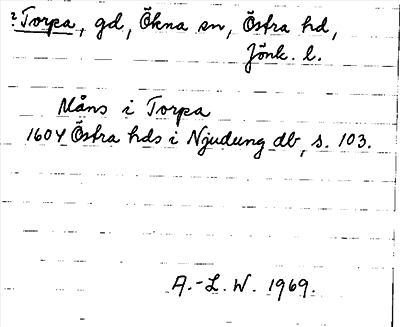 ?Torpa, gd, Ökna sn, Östra hd,
Jönk. l.
Måns i Torpa
1604 Östra hds i Njudung db, s. 103.
A.-L. W. 1969.